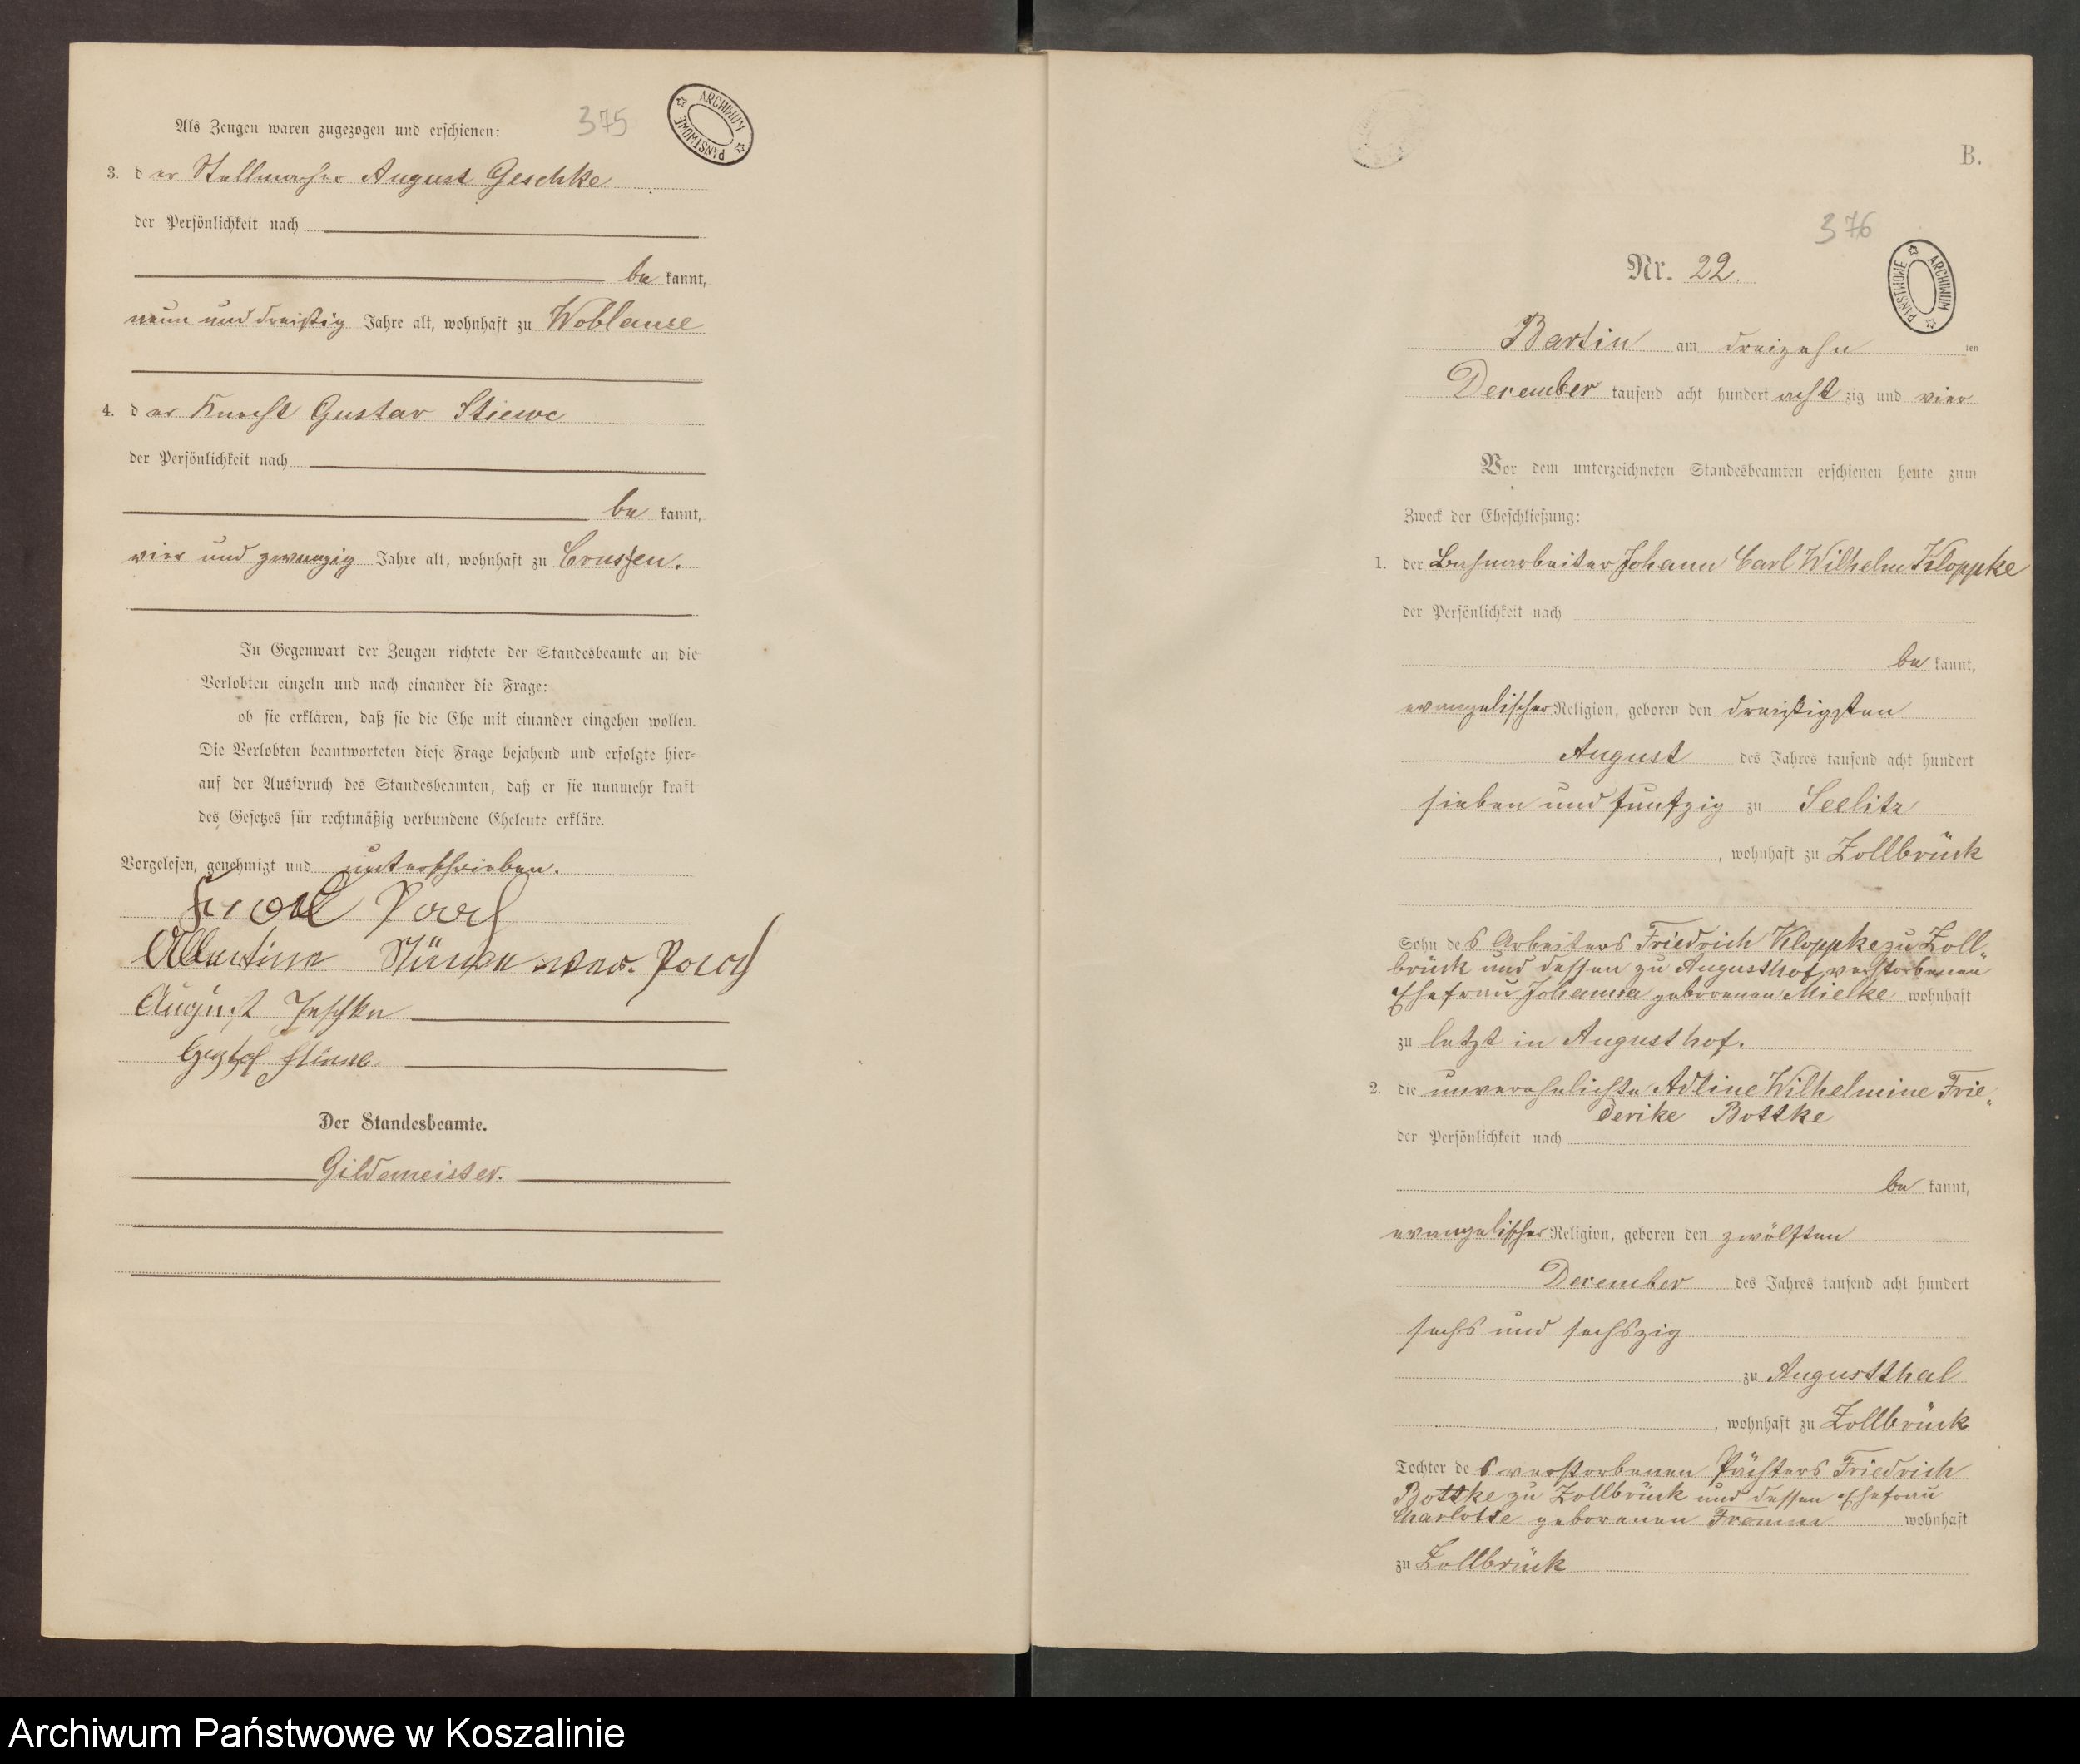 375
ARCHIWUM PAŃSTWOWE
Als Zeugen waren zugezogen und erschienen:
3. der Stellmacher August Geschke
der Persönlichkeit nach
bekannt,
neun und dreißig Jahre alt, wohnhaft zu Woblanse
4. der Knecht Gustav Stiewe
der Persönlichkeit nach
bekannt,
vier und zwanzig Jahre alt, wohnhaft zu Crussen.
In Gegenwart der Zeugen richtete der Standesbeamte an die
Verlobten einzeln und nach einander die Frage:
ob sie erklären, daß sie die Ehe mit einander eingehen wollen.
Die Verlobten beantworteten diese Frage bejahend und erfolgte hier-
auf der Ausspruch des Standesbeamten, daß er sie nunmehr kraft
des Gesetzes für rechtmäßig verbundene Eheleute erkläre.
Vorgelesen, genehmigt und unterschrieben.
Albertine
August Jeschke
Der Standesbeamte.
Gildemeister.
B.
376
ARCHIWUM PAŃSTWOWE
Nr. 22.
Bartin am dreizehn ten
December tausend acht hundert acht zig und vier
Vor dem unterzeichneten Standesbeamten erschienen heute zum
Zweck der Eheschließung:
1. der Bahnarbeiter Johann Carl Wilhelm Kloppke
der Persönlichkeit nach
bekannt,
evangelischer Religion, geboren den dreißigsten
August des Jahres tausend acht hundert
sieben und funfzig zu Seelitz
, wohnhaft zu Zollbrück
Sohn des Arbeiters Friedrich Kloppke zu Zoll-
brück und dessen zu Augusthof verstorbenen
Ehefrau Johanna geborenen Mielke wohnhaft
zu letzt in Augusthof.
2. die unverehelichte Adline Wilhelmine Frie-
derike Bottke
der Persönlichkeit nach
bekannt,
evangelischer Religion, geboren den zwölften
December des Jahres tausend acht hundert
sechs und sechszig
zu Augustthal
, wohnhaft zu Zollbrück
Tochter des verstorbenen Pächters Friedrich
Bottke zu Zollbrück und dessen Ehefrau
Charlotte geborenen Fromm wohnhaft
zu Zollbrück
Archiwum Państwowe w Koszalinie